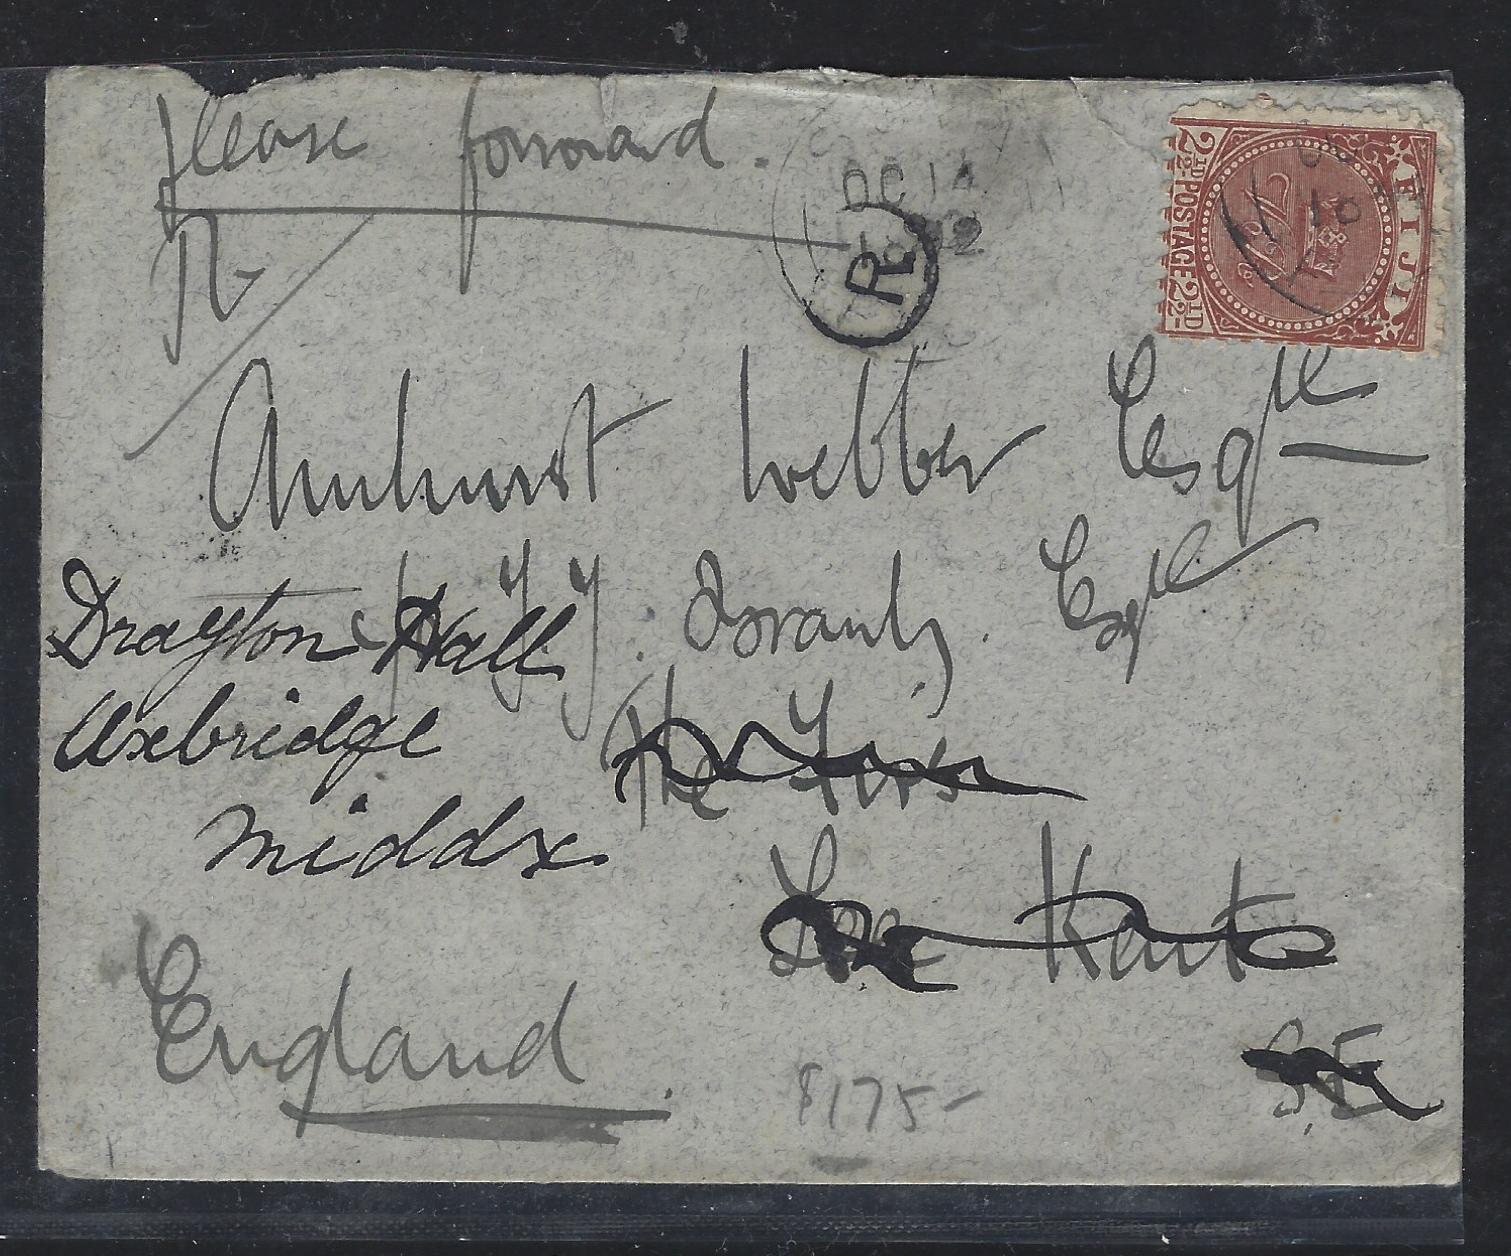 Please forward.
R
OC 14
92
R
FIJI
2½D POSTAGE 2½D
10
Amhurst Webber Esqre
Esqre
Drayton Hall
Uxbridge
Middx
The Firs
Lee Kent
S.E
England
$175-